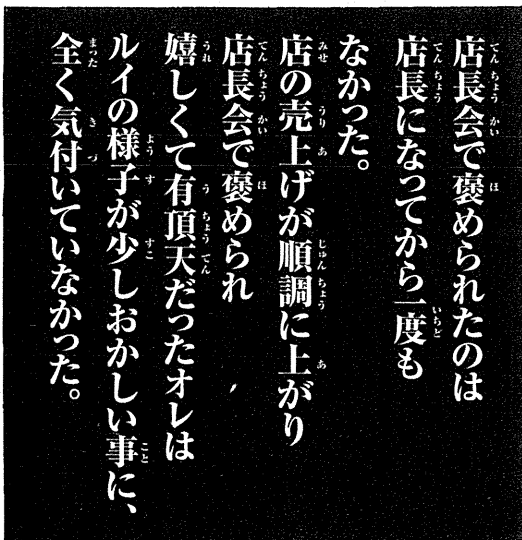 店長会で褒められたのは
店長になってから一度も
なかった。
店の売上げが順調に上がり
店長会で褒められ
嬉しくて有頂天だったオレは
ルイの様子が少しおかしい事に、
全く気付いていなかった。